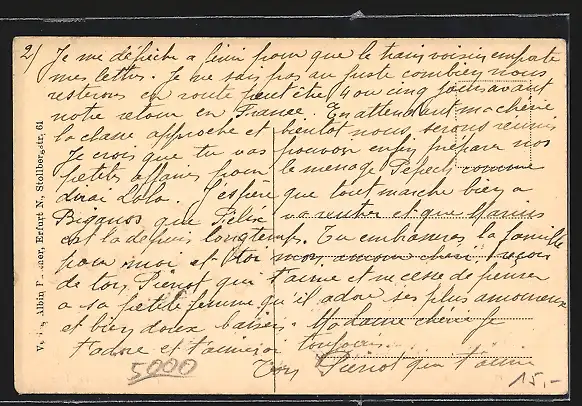 2/ Je me dépêche a finir pour que le train voisin emporte
mes lettres. Je ne sais pas au juste combien nous
resterons en route peut être 4 ou cinq jours avant
notre retour en France. En attendant ma chérie
la classe approche et bientot nous serons réunis
Je crois que tu vas pouvoir enfin préparer nos
petites affaires pour le menage Pépech comme
dirai Lolo. J'espère que tout marche bien a
Biganos que Félix va rentrer et que Marius
est la depuis longtemps. Tu embrasseras la famille
pour moi et toi mon amour chéri reçois
de ton Pierrot qui t'aime et ne cesse de penser
a sa petite femme qu'il adore ses plus amoureux
et bien doux baisers. Madame chérie Je
t'adore et t'aimerai toujours.
Ton Pierrot qui t'aime
5000
15,-
Albin Erfurt N., Stollbergstr. 61